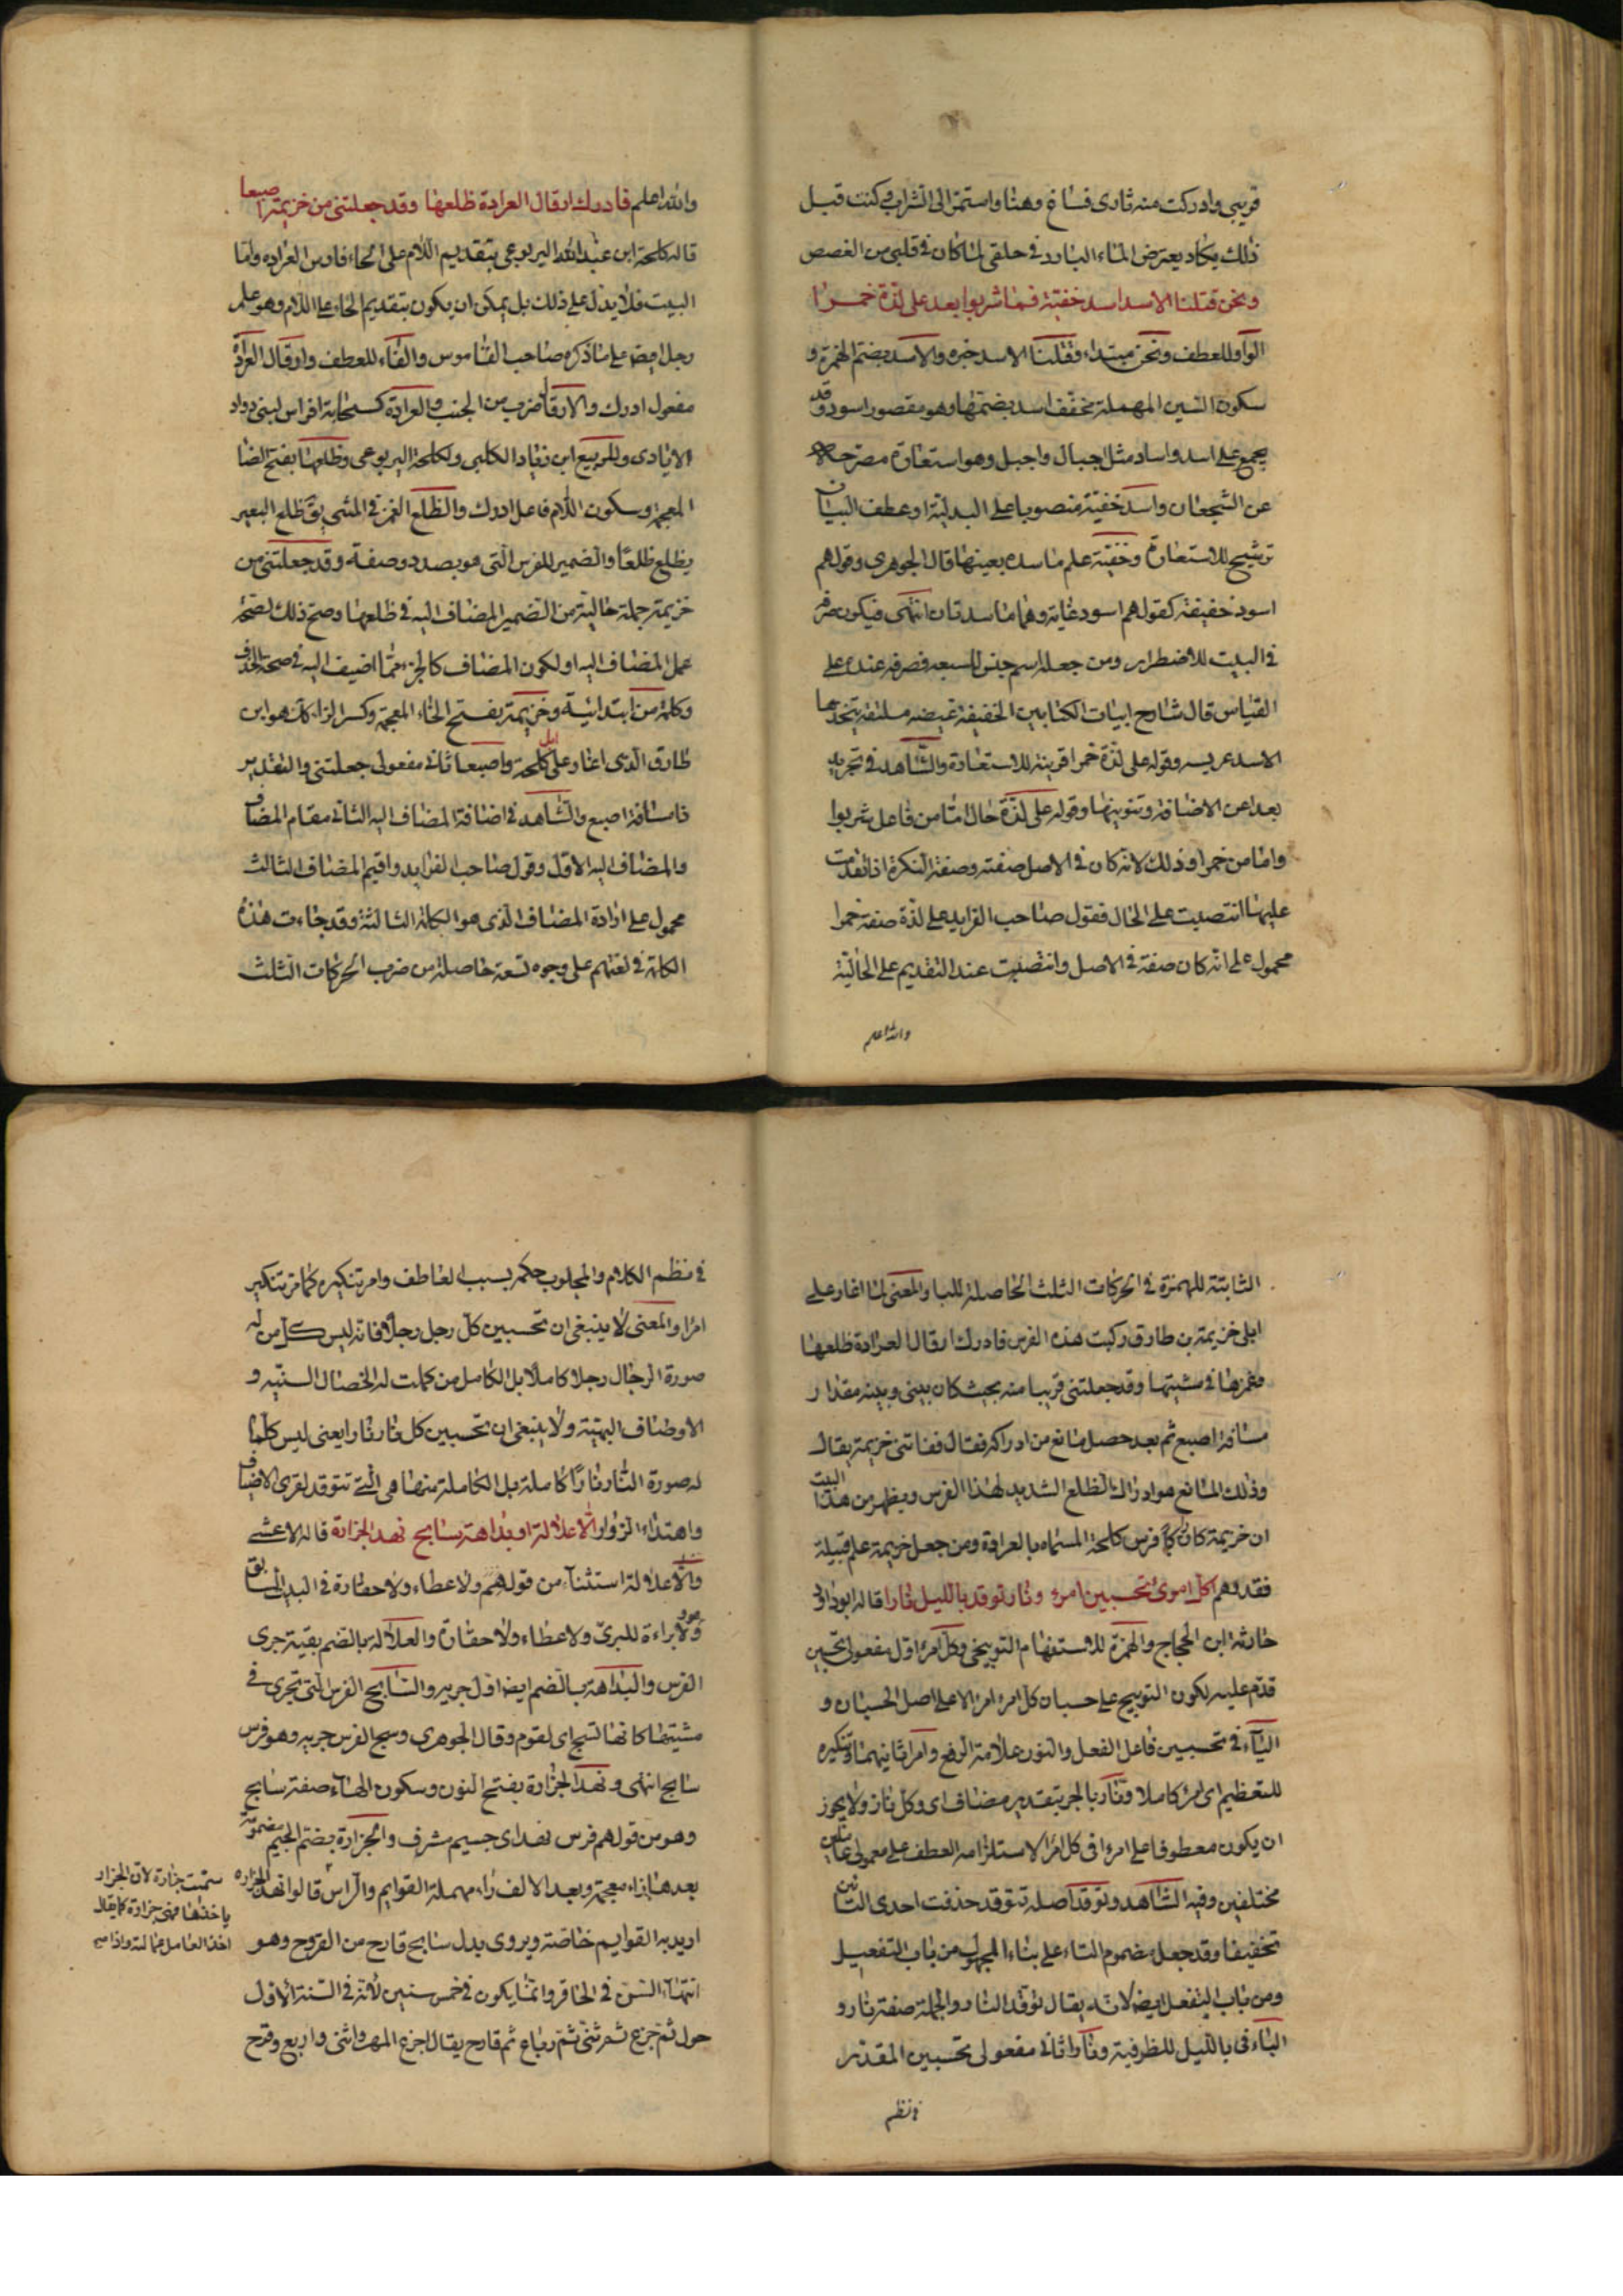 قريبى وادركت منه ثارى فساغ وهنا واستمرّ الى الشراب وكنت قبل
ذلك يكاد يعترض الماء البارد فى حلقى لما كان فى قلبى من الغصص
ونحن قتلنا الاسد اسد خفيّة فما شربوا بعد على لذّة خمرا
الواو للعطف ونحن مبتداء وقتلنا الاسد خبره والاسد بضمّ الهمزة و
سكون السين المهملة مخفّف اسد بضمّتها وهو مقصور اسود وقد
يجمع على اسد واساد مثل اجبال واجبل وهو استعارة مصرحة
عن الشجعان واسد خفيّة منصوبا على البدلية او عطف البيان
ترشيح للاستعارة وخفيّة علم ماسدة بعينها قال الجوهرى وقولهم
اسود خفيّة كقولهم اسود غابة وهما ماسدتان انتهى فيكون صرفه
فى البيت للاضطرار ومن جعله اسم جنس فصرفه عنده على
القياس قال شارح ابيات الكتابين الخفية غيضة ملتفة يتخذها
الاسد عريسه وقوله على لذّة خمرا قرينة للاستعارة والشاهد فى تجريد
بعد عن الاضافة وتنوينها وقوله على لذّة حال امّا من فاعل شربوا
وامّا من خمرا وذلك لانّه كان فى الاصل صفته وصفة النكرة اذا تقدمت
عليها انتصبت على الحال فقول صاحب الفرايد على لذّة صفة خمرا
محمول على انّه كان صفة فى الاصل وانتصبت عند التقديم على الحاليّة
والله اعلم
والله اعلم فادرك ارقال العرادة ظلعها وقد جعلتنى من خزيمة اصبعا
قاله كلحبة ابن عبد الله اليربوعى بتقديم اللام على الحاء فارس العراده وامّا
البيت فلا يدلّ على ذلك بل يمكن ان يكون بتقديم الحاء على اللام وهو علم
رجل ايضا على ما ذكره صاحب القاموس والفاء للعطف وارقال العرادة
مفعول ادرك والارقال ضرب من الخبب والعرادة كسحابة افراس لبنى دواد
الايادى وللربيع ابن زياد الكلبى ولكلحبة اليربوعى وظلعها بفتح الضا
المعجمة وسكون اللام فاعل ادرك والظلع الغمز فى المشى يق ظلع البعير
يظلع ظلعًا والضمير للفرس التى هو بصدد وصفه وقد جعلتنى من
خزيمة جملة حالية من الضمير المضاف اليه فى ظلعها وصحّ ذلك لصحة
عمل المضاف اليه او لكون المضاف كالجزء ممّا اضيف اليه فى صحة الحذف
وكلمة من ابتدائية وخزيمة بفتح الخاء المعجمة وكسر الزاء كان هو ابن
طارق الذى اغار على ابل كلحبة واصبعا ثانى مفعولى جعلتنى والتقدير
ذا مسافة اصبع والشاهد فى اضافة المضاف اليه الثانى مقام المضاف
والمضاف اليه الاوّل وقول صاحب الفرايد واقيم المضاف الثالث
محمول على ارادة المضاف الذى هو الكلمة الثالثة وقد جاءت هذه
الكلمة فى لغتهم على وجوه تسعة حاصلة من ضرب الحركات الثلث
الثابتة للهمزة فى الحركات الثلث الحاصلة للبا والمعنى لما اغار على
ابلى خزيمة بن طارق ركبت هذه الفرس فادرك ارقال العرادة ظلعها
وغمزها فى مشيتها وقد جعلتنى قريبا منه بحيث كان بينى وبينه مقدار
مسافة اصبع ثم بعد حصل مانع من ادراكه فقال ففاتنى خزيمة يقال
وذلك المانع هو ادراك الظلع الشديد لهذا الفرس ويظهر من هذا البيت
ان خزيمة كان فرس كلحبة المسماه بالعرادة ومن جعل خزيمة علم قبيلة
فقد وهم اكل امرئ تحسبين امرء ونار توقد بالليل نارا قاله ابو داود
حارثة ابن الحجاج والهمزة للاستفهام التوبيخى وكل امرء اوّل مفعولى تحسبين
قدّم عليه لكون التوبيخ على حسبان كل امرء امرء لا على اصل الحسبان و
الياء فى تحسبين فاعل الفعل والنون علامة الرفع وامرا ثانيهما وتنكيره
للتعظيم اى امرء كاملا ونار بالجر بتقدير مضاف اى وكل نار ولا يجوز
ان يكون معطوفا على امرء فى كل امرء لاستلزامه العطف على معمولى عاملين
مختلفين وفيه الشاهد وتوقد اصله تتوقد حذفت احدى التائين
تخفيفا وقد جعل مضموم التاء على بناء المجهول من باب التفعيل
ومن باب التفعل ايضا لانه يقال توقد النار والجملة صفة نار و
الباء فى بالليل للظرفية ونارا ثانى مفعولى تحسبين المقدّر
فى نظم
فى نظم الكلام والمجلوب حكمه بسبب العاطف وامر تنكيره كما مرّ تنكير
امرا والمعنى لا ينبغى ان تحسبين كلّ رجل رجلا فانه ليس كل من له
صورة الرجال رجلا كاملا بل الكامل من كملت له الخصال السنيّه و
الاوصاف البهيّة ولا ينبغى ان تحسبين كل نار نارا يعنى ليس كلّما
له صورة النار نارًا كاملة بل الكاملة منها هى التى تتوقد لقرى الاضياف
واهتداء الزوار الّا علالة او بداهة سابح نهد الجزارة قاله الاعشى
والّا علالة استثناء من قولهم ولا عطاء ولا حفارة فى البيت السابق
وهو ولا براءة للبرىّ ولا عطاء ولا حفارة والعلالة بالضم بقية جرى
الفرس والبداهة بالضم ايضا اوّل جريه والسّابح الفرس التى تجرى فى
مشيتها كانها تسبح اى تقوم وقال الجوهرى وسبح الفرس جريه وهو فرس
سابح انتهى ونهد الجزارة بفتح النون وسكون الهاء صفة سابح
وهو من قولهم فرس نهد اى جسيم مشرف والجزارة بضمّ الجيم مضمومة
بعدها زاء معجمة وبعد الالف راء مهملة القوايم والرّاس قالوا نهد الجزارة
اريد به القوايم خاصّة ويروى بدل سابح قارح من القروح وهو
انتهاء السّن فى الحافر وانّما يكون فى خمس سنين لانّه فى السّنة الاولى
حولى ثم جزع ثم ثنى ثمّ رباع ثم قارح يقال اجزع المهر واثنى واربع وقرح
سمّيت جزارة لانّ الجزار
ياخذها فهى جزارة كما يقال
اخذ العامل عمالته